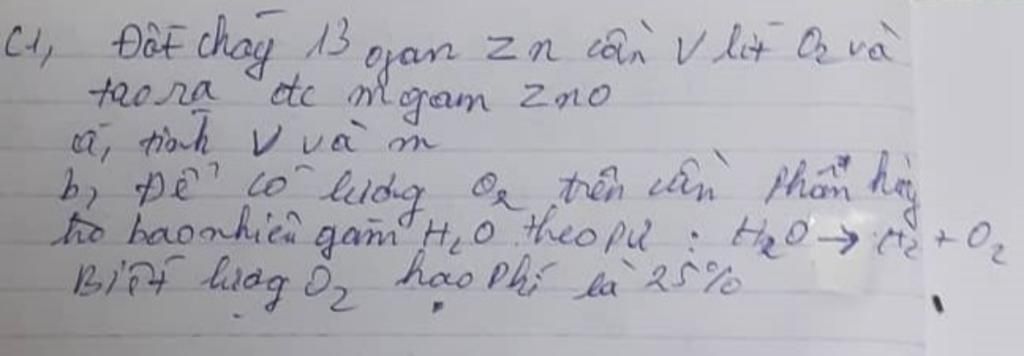 C1, Đốt cháy 13 gam Zn cần V lít O₂ và
tạo ra đc m gam ZnO
a, tính V và m
b, Để có lượng O₂ trên cần phân hủy
bao nhiêu gam H₂O theo pư : H₂O → H₂ + O₂
Biết lượng O₂ hao phí là 25%